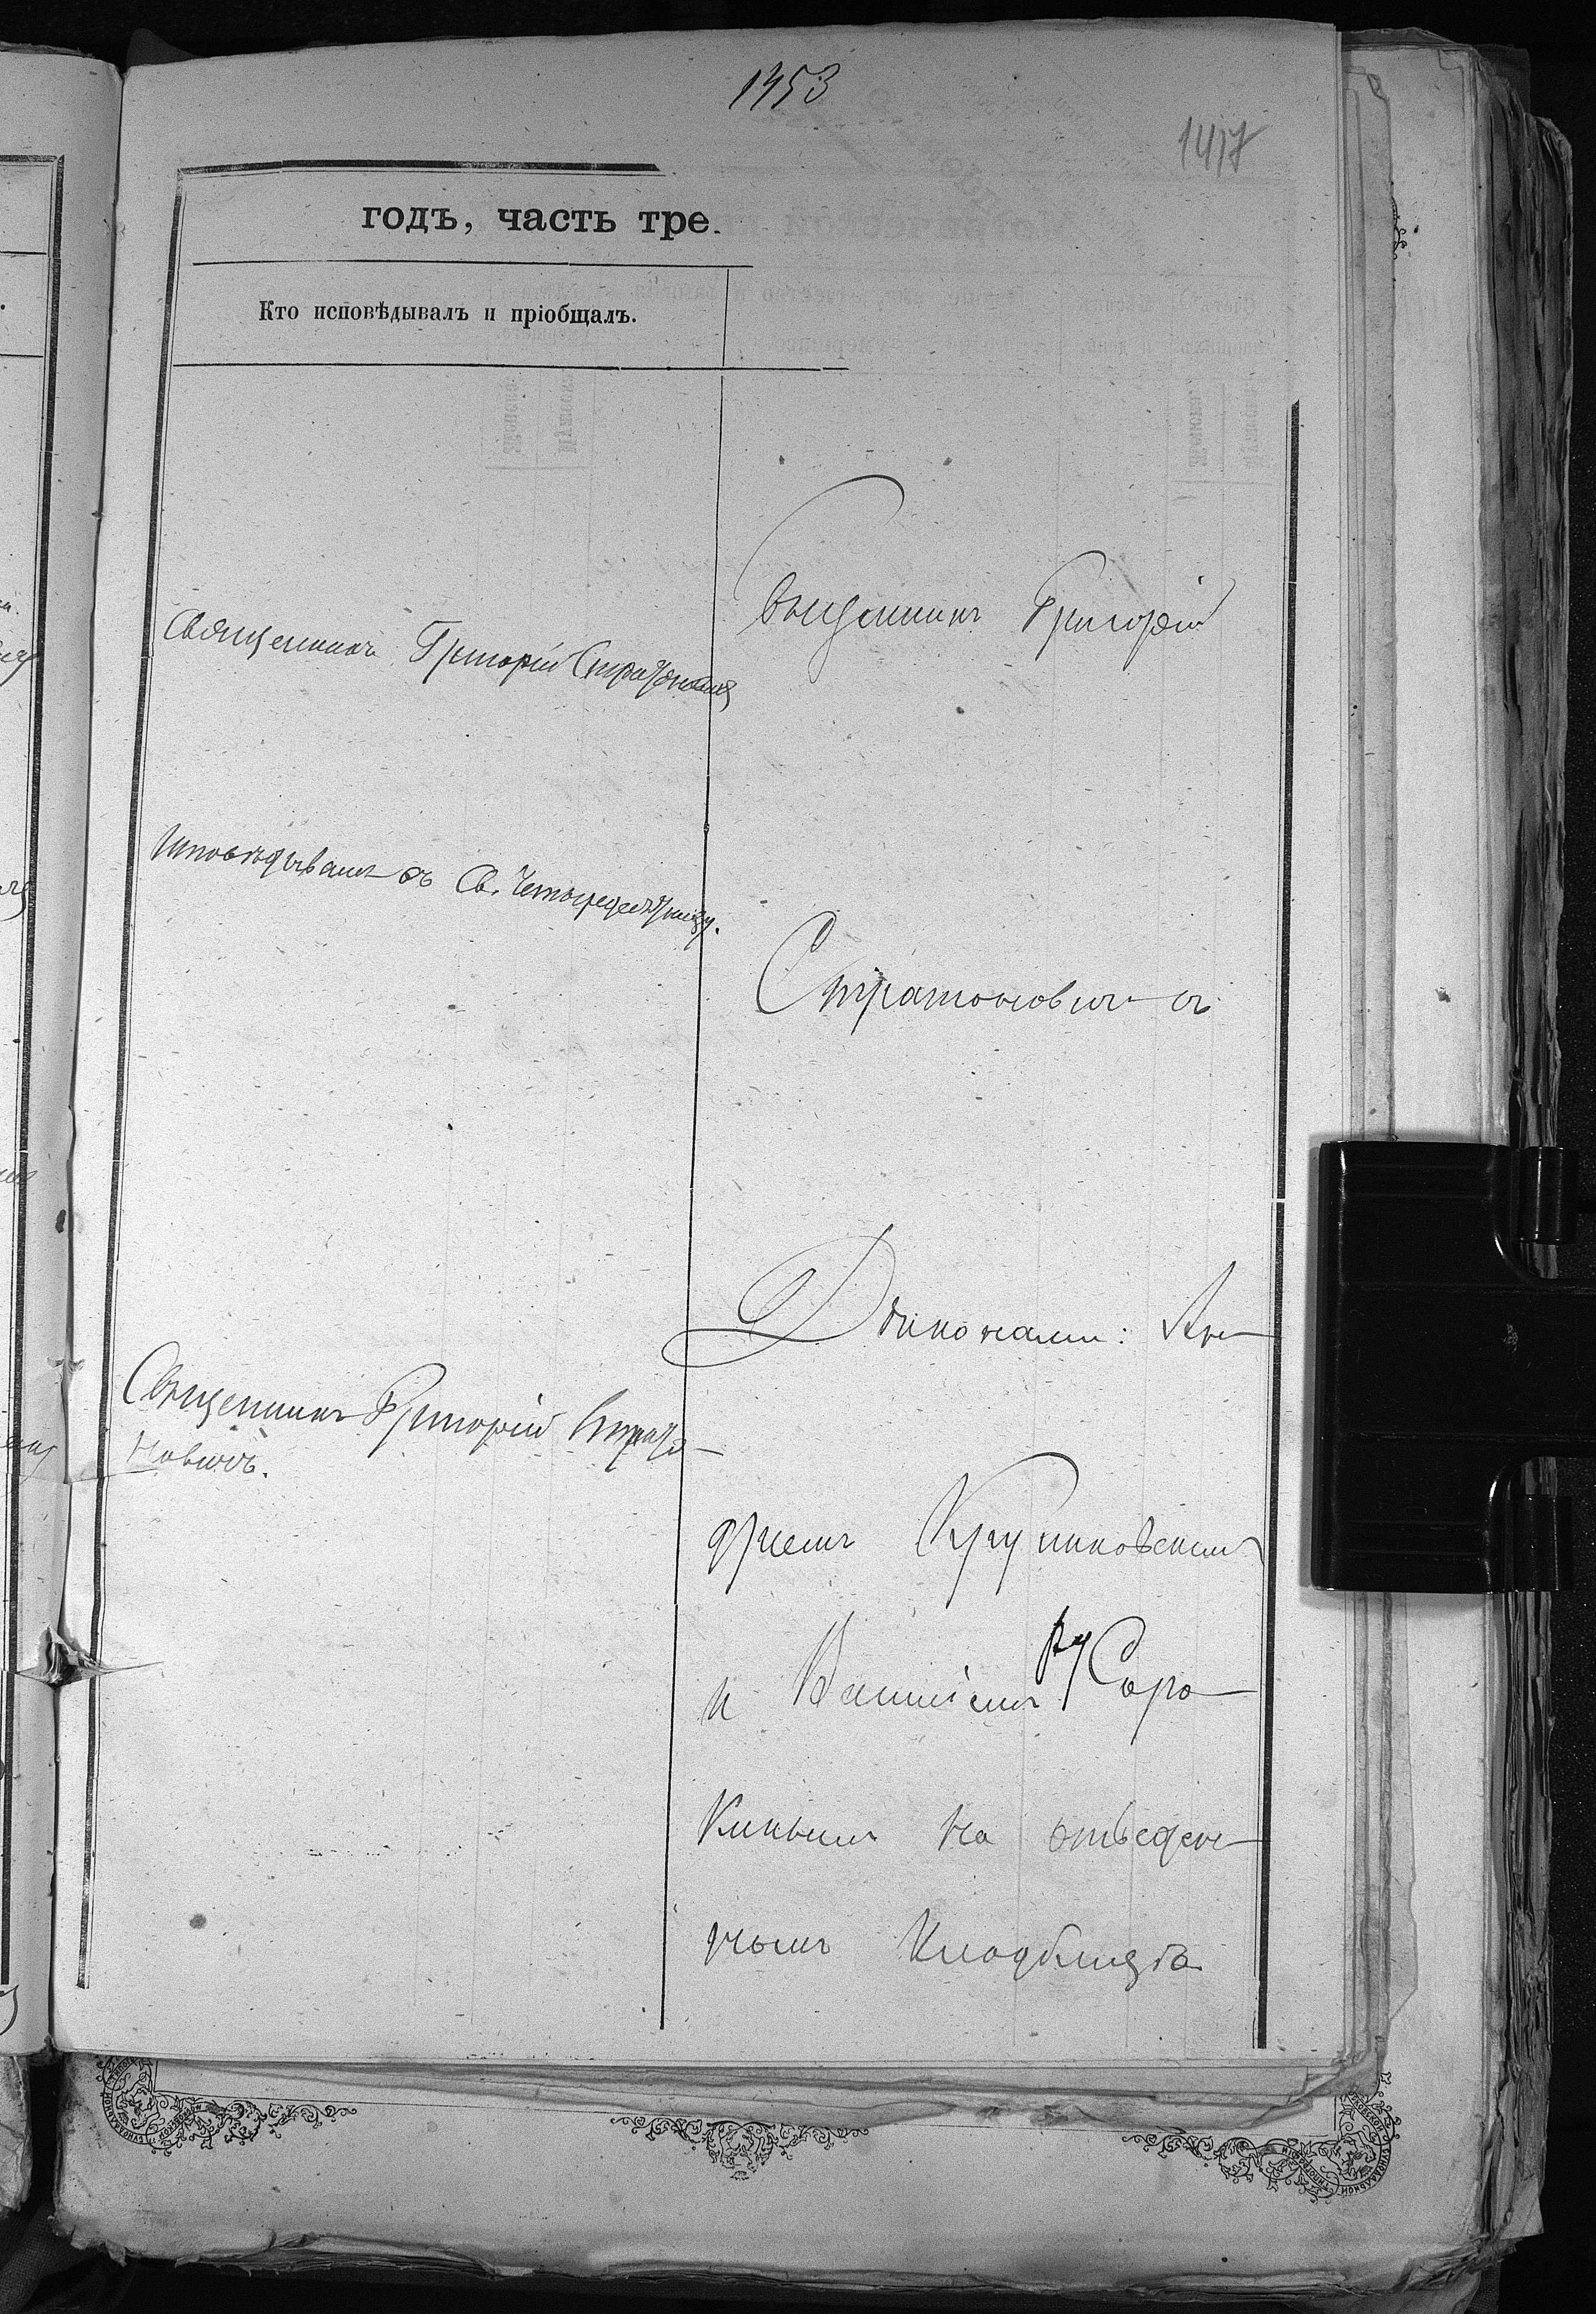 1453
1417
годъ, часть тре
Кто исповѣдывалъ и пріобщалъ.
Священникъ Григорій Стратоновичъ
Исповѣдывалъ въ Св. Четыредесятницу.
Священникъ Григорій Страто-
новичъ.
Священникъ Григорій
Стратоновичъ съ
Діаконами: Ан-
дреемъ
и Василіемъ Соро-
кинымъ на отведен-
номъ кладбищѣ.